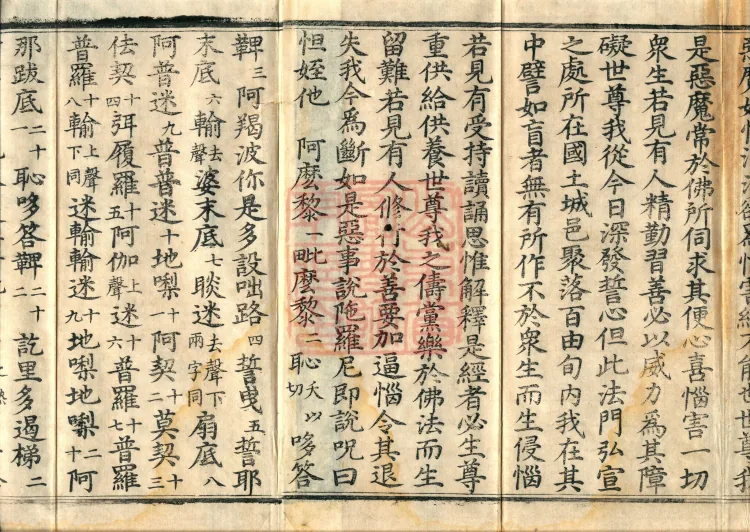 是惡魔常於佛所伺求其便心喜惱害一切
衆生若見有人精勤習善必以威力爲其障
礙世尊我從今日深發誓心但此法門弘宣
之處所在國土城邑聚落百由旬内我在其
中譬如盲者無有所作不於衆生而生侵惱
若見有受持讀誦思惟解釋是經者必生尊
重供給供養世尊我之儔黨樂於佛法而生
留難若見有人修行於善要加逼惱令其退
失我今爲斷如是惡事說陁羅尼即說呪曰
怛姪他　阿麽黎一毗麽黎二恥夭以切哆答
鞞三阿羯波你是多設咄路四誓曳五誓耶
末底六輸去聲婆末底七睒迷去聲下兩字同扇底八
阿普迷九普普迷十地𠼝十一阿契十二莫契十三
佉契十四弭履羅十五阿伽上聲迷十六普羅十七普羅
普羅十八輸上聲下同迷輸輸迷十九地𠼝地𠼝二十阿
那跋底二十一恥哆答鞞二十二訖里多過梯二